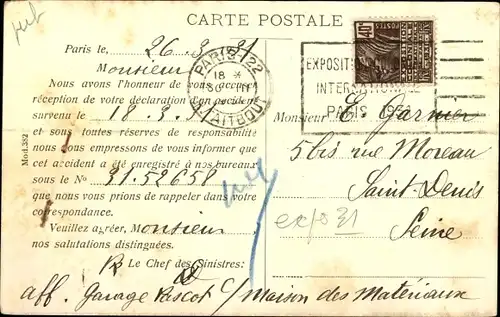 CARTE POSTALE
Paris le, 26.3.31
Monsieur
Nous avons l'honneur de vous accuser
réception de votre déclaration d'un accident
survenu le 18.3.31
et sous toutes réserves de responsabilité
nous nous empressons de vous informer que
cet accident a été enregistré à nos bureaux
sous le No 31.52658
que nous vous prions de rappeler dans votre
correspondance.
Veuillez agréer, Monsieur
nos salutations distinguées.
Le Chef des Sinistres:
aff. Garage Pascot c/ Maison des Matériaux
Mod. 382
PARIS 22
18 *
30
TAITBOUT
EXPOSITION COLONIALE
INTERNATIONALE
PARIS 1931
40
Monsieur E. Garnier
5 bis rue Moreau
Saint-Denis
Seine
expo 31